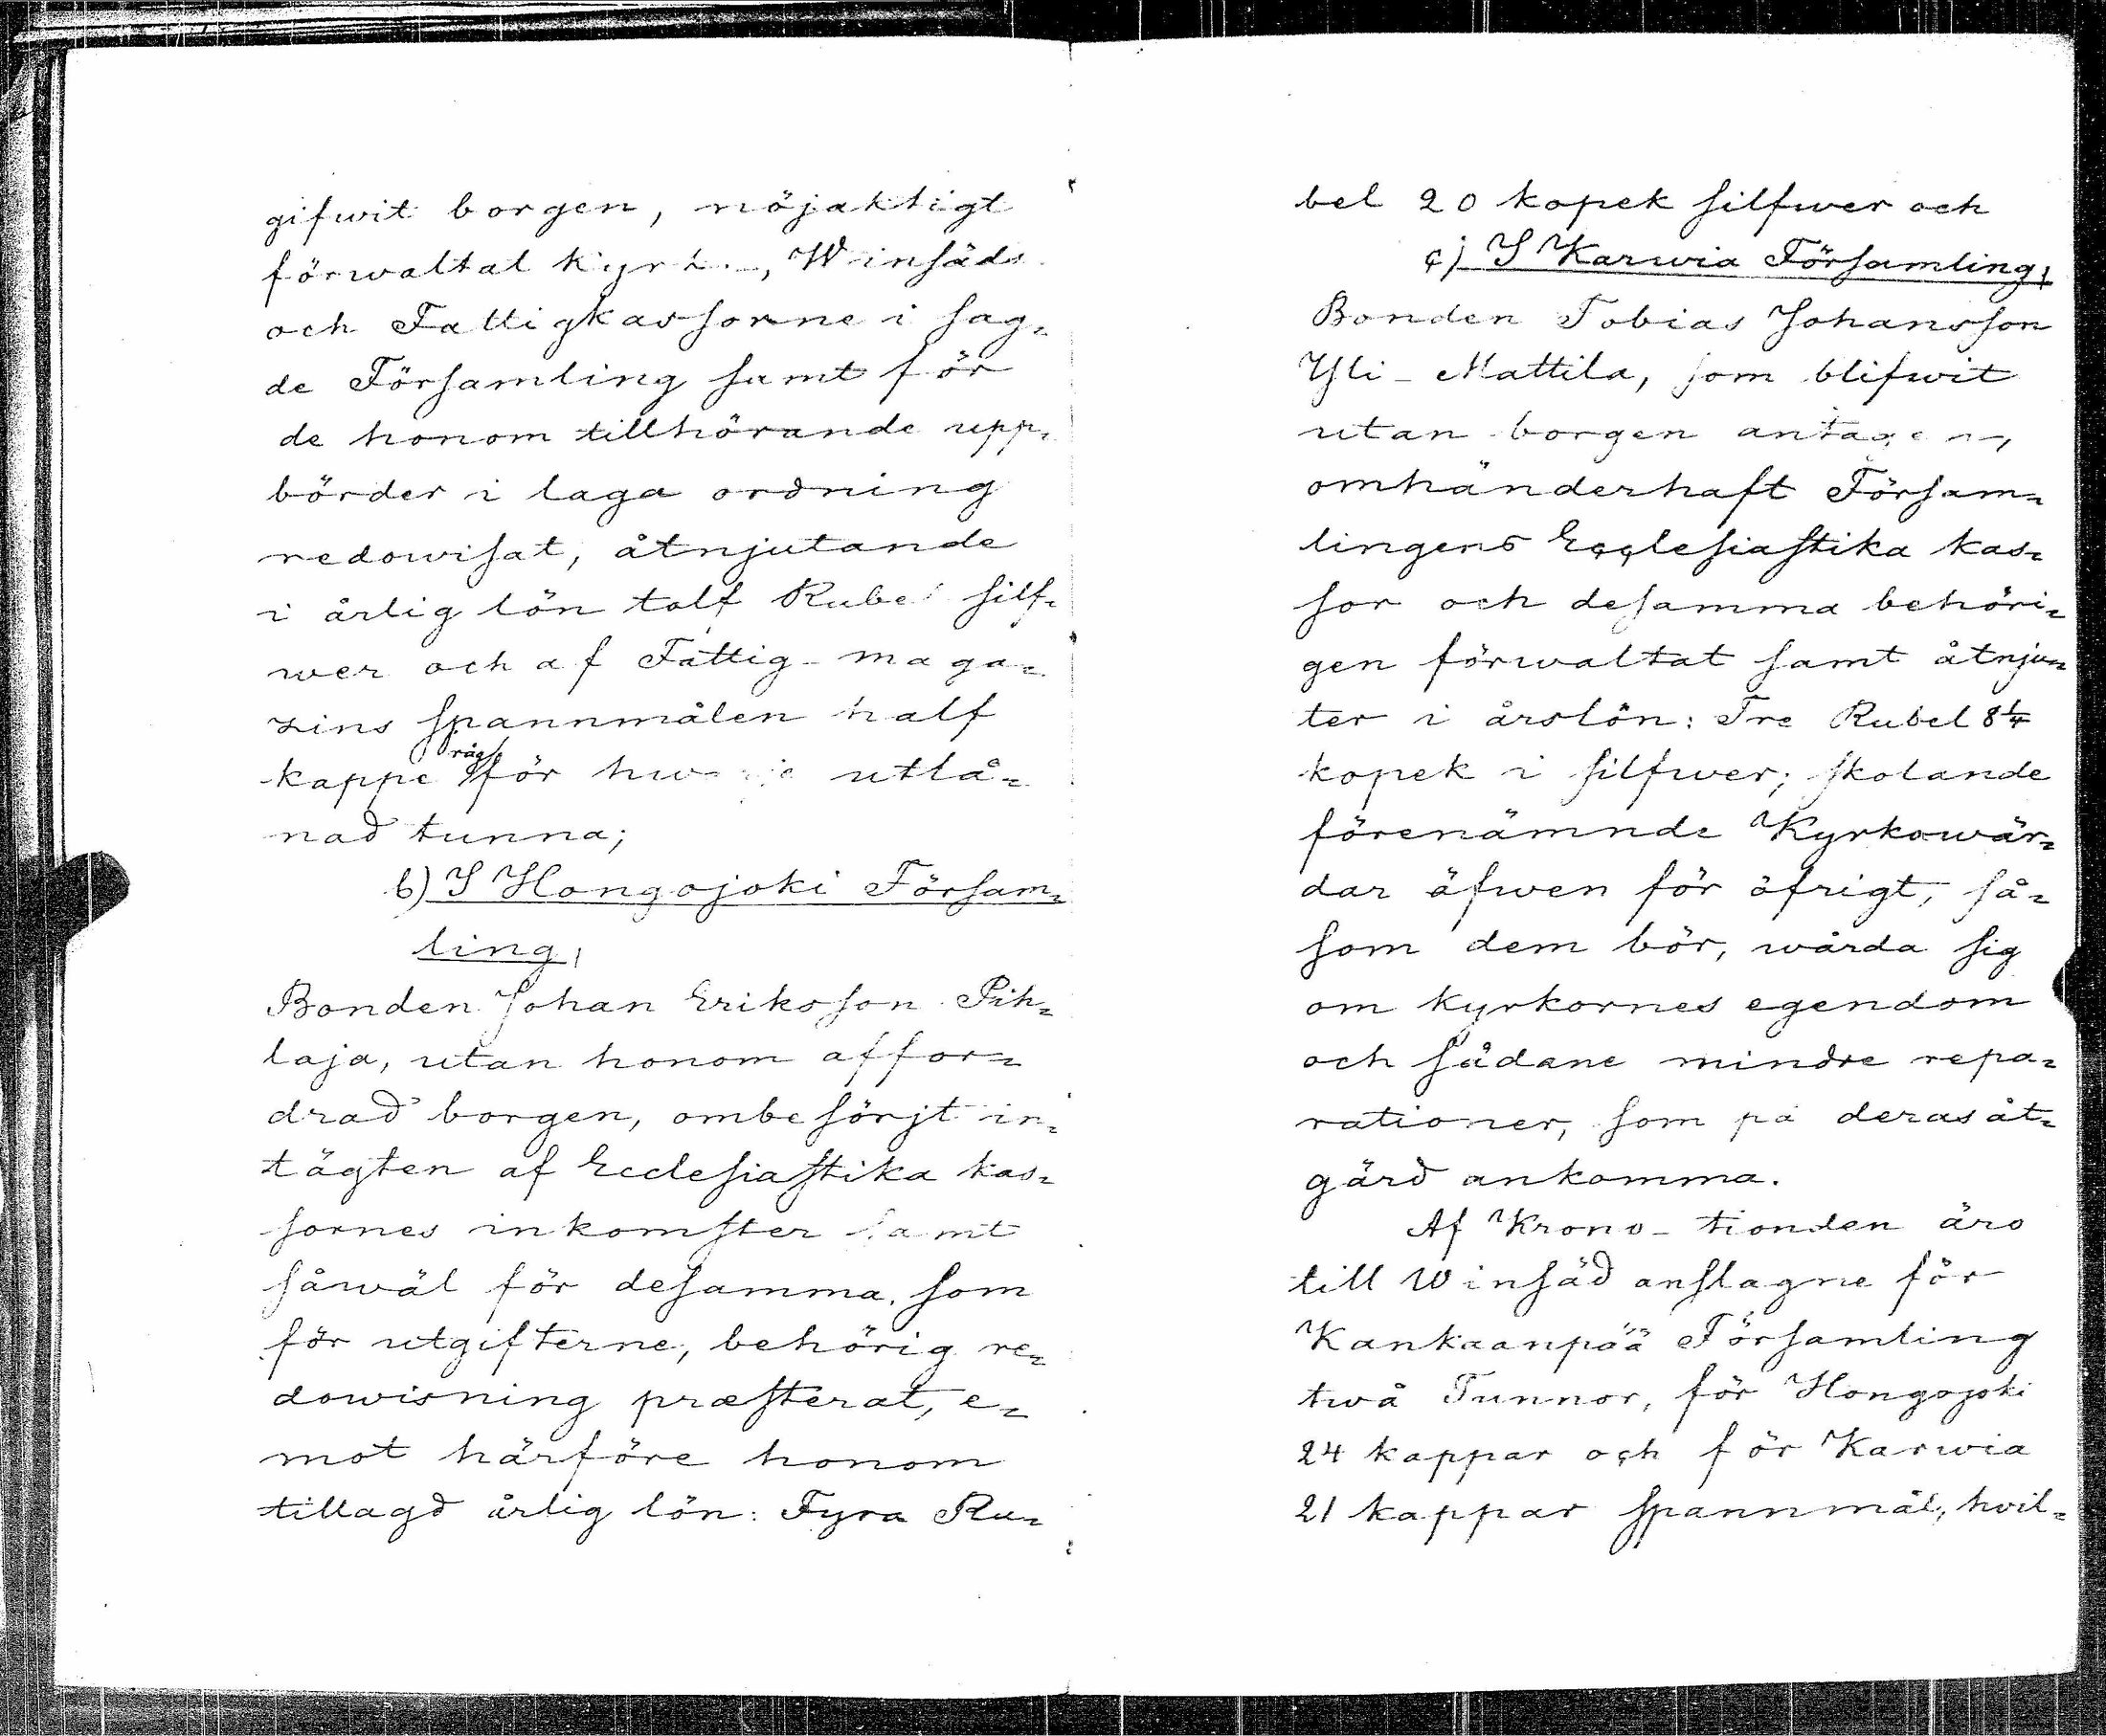 gifwit borgen, nöjaktigt
förwaltat Kyrk-, Winsäds
och Fattigkassorne i sag-
de Församling samt för
de honom tillhörande upp-
börder i laga ordning
redowisat, åtnjutande
i årlig lön tolf Rubel silf-
wer och af Fattig-maga-
zins spannmålen half
kappe råg för hwarje utlå-
nad tunna;
b) I Hongojoki Försam-
ling,
Bonden Johan Eriksson Pih-
laja, utan honom affor-
drad borgen, ombesörjt in-
tägten af Ecclesiastika kas-
sornes inkomster samt
såwäl för desamma, som
för utgifterne, behörig re-
dowisning præsterat, e-
mot härföre honom
tillagd årlig lön: Fyra Ru-
bel 20 kopek silfwer och
c) I Karwia Församling,
Bonden Tobias Johansson
Yli-Mattila, som blifwit
utan borgen antagen,
omhänderhaft Försam-
lingens Ecclesiastika kas-
sor och desamma behöri-
gen förwaltat samt åtnju-
ter i årslön: Tre Rubel 8 1/4
kopek i silfwer; skolande
förenämnde Kyrkowär-
dar äfwen för öfrigt, så-
som dem bör, wårda sig
om kyrkornes egendom
och sådane mindre repa-
rationer, som på deras åt-
gärd ankomma.
Af Krono-tionden äro
till Winsäd anslagne för
Kankaanpää Församling
twå Tunnor, för Hongojoki
24 kappar och för Karwia
21 kappar spannmål, hvil-